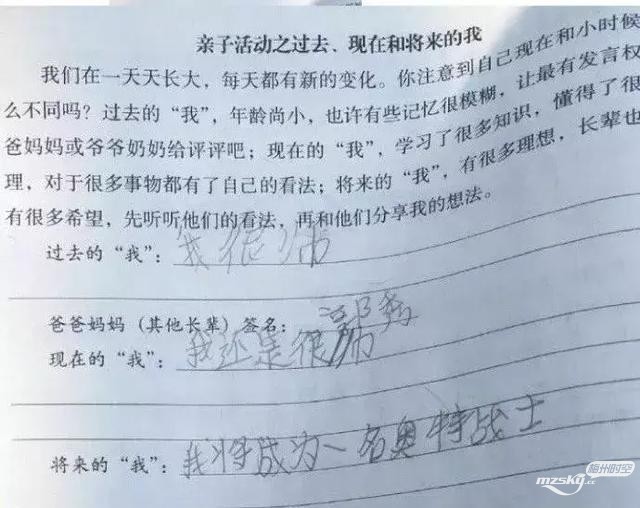 亲子活动之过去、现在和将来的我
我们在一天天长大，每天都有新的变化。你注意到自己现在和小时候
么不同吗？过去的“我”，年龄尚小，也许有些记忆很模糊，让最有发言权
爸妈妈或爷爷奶奶给评评吧；现在的“我”，学习了很多知识，懂得了很
理，对于很多事物都有了自己的看法；将来的“我”，有很多理想，长辈也
有很多希望，先听听他们的看法，再和他们分享我的想法。
过去的“我”：我很帅
爸爸妈妈（其他长辈）签名：
现在的“我”：我还是很帅
将来的“我”：我将成为一名奥特战士
梅州时空
mzsky.cc